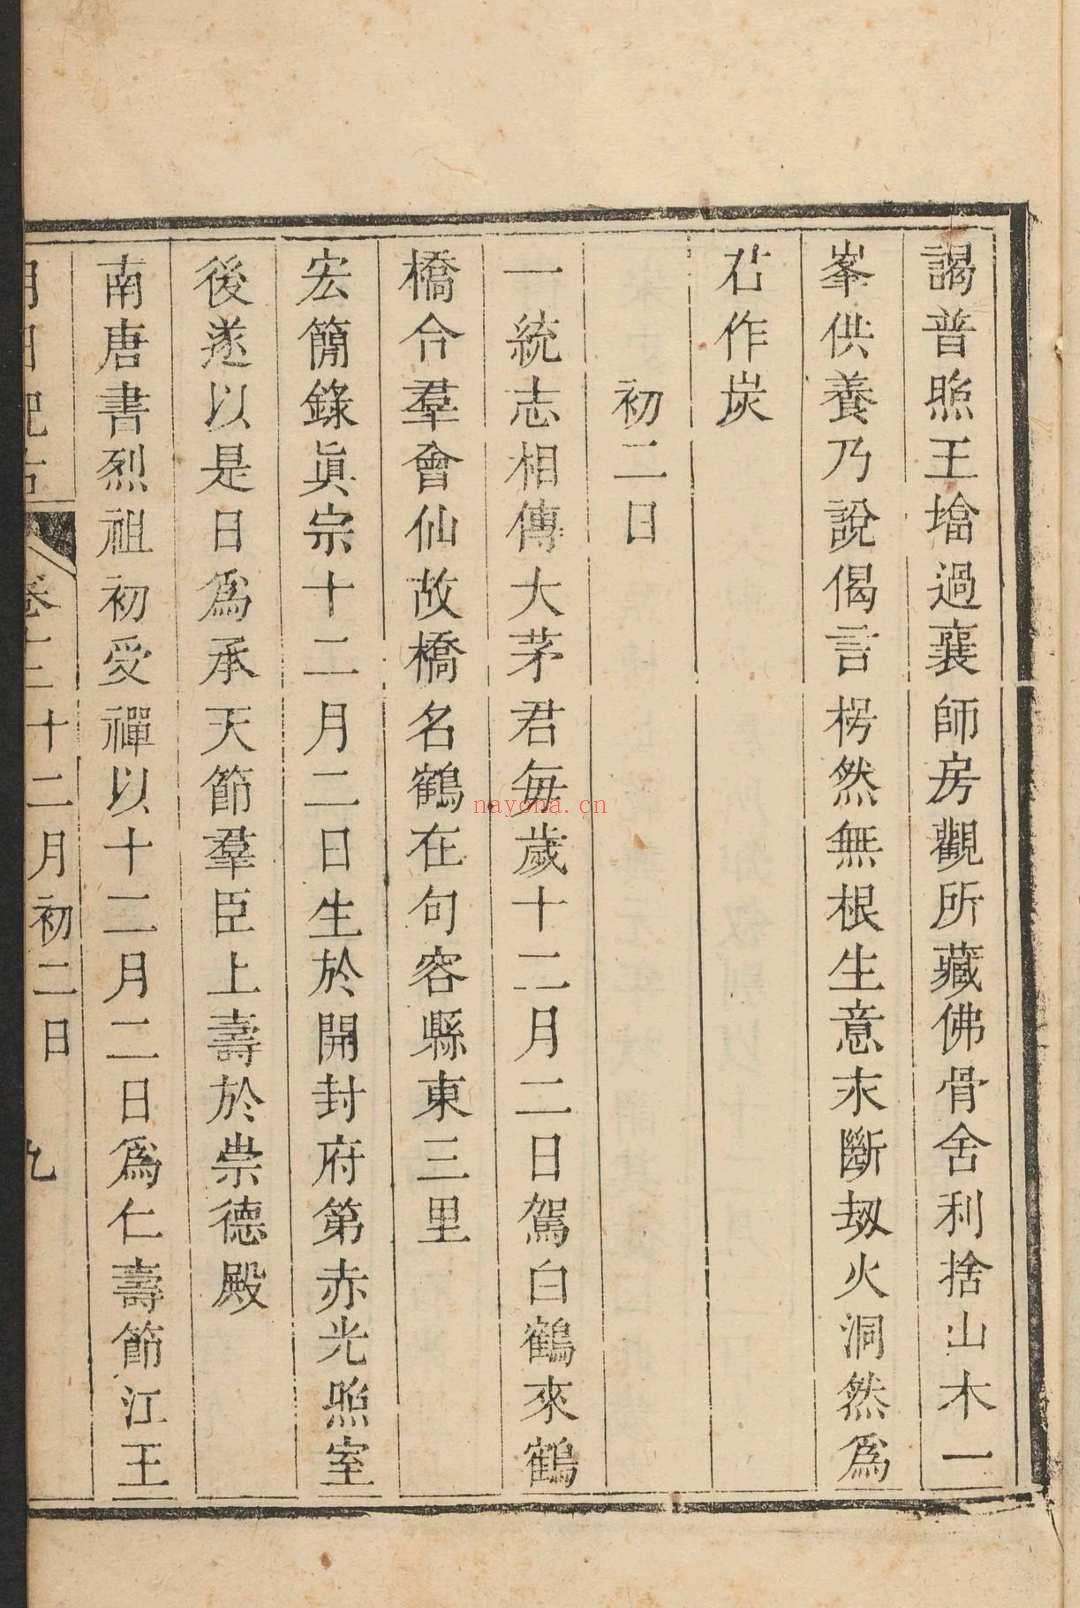 謁普照王墖過襄師房觀所藏佛骨舍利捨山木一
峯供養乃說偈言枵然無根生意未斷刼火洞然爲
君作炭
初二日
一統志相傳大茅君每歲十二月二日駕白鶴來鶴
橋合羣會仙故橋名鶴在句容縣東三里
宏簡錄眞宗十二月二日生於開封府第赤光照室
後遂以是日爲承天節羣臣上壽於崇德殿
南唐書烈祖初受禪以十二月二日爲仁壽節江王
月日紀古 卷十二 十二月初二日 九
nayona.cn